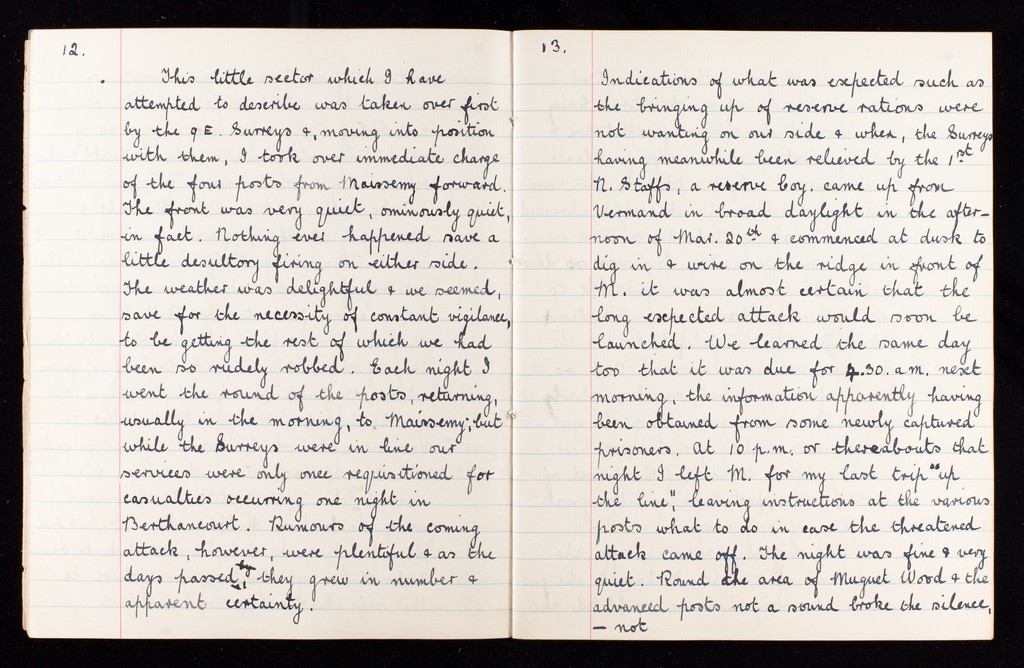 12.
This little sector which I have
attempted to describe was taken over first
by the 9 E. Surreys &, moving into position
with them, I took over immediate charge
of the four posts from Maissemy forward.
The front was very quiet, ominously quiet,
in fact. Nothing ever happened save a
little desultory firing on either side.
The weather was delightful & we seemed,
save for the necessity of constant vigilance,
to be getting the rest of which we had
been so rudely robbed. Each night I
went the round of the posts, returning,
usually in the morning, to Maissemy; but
while the Surreys were in line our
services were only once requisitioned for
casualties occurring one night in
Berthancourt. Rumours of the coming
attack, however, were plentiful & as the
days passed by they grew in number &
apparent certainty.
13.
Indications of what was expected such as
the bringing up of reserve rations were
not wanting on our side & when, the Surreys
having meanwhile been relieved by the 1st
N. Staffs, a reserve Coy. came up from
Vermand in broad daylight in the after-
noon of Mar. 20th & commenced at dusk to
dig in & wire on the ridge in front of
M. it was almost certain that the
long expected attack would soon be
launched. We learned the same day
too that it was due for 4.30. a.m. next
morning, the information apparently having
been obtained from some newly captured
prisoners. At 10 p.m. or thereabouts that
night I left M. for my last trip "up
the line", leaving instructions at the various
posts what to do in case the threatened
attack came off. The night was fine & very
quiet. Round the area of Muguet Wood & the
advanced posts not a sound broke the silence,
– not